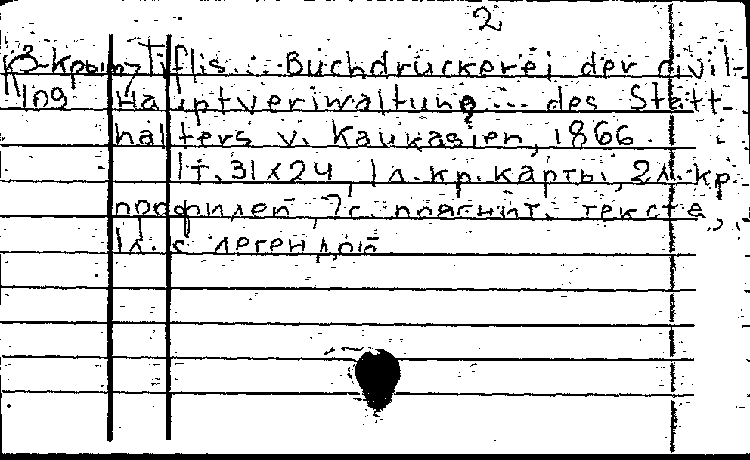 2
К3-Крым/ Tiflis... Buchdruckerei der civil-
109 Hauptveriwaltung... des Statt-
halters v. Kaukasien, 1866.
1т. 31x24, 1 л. кр. карты, 2 л. кр.
профилей, 7с. пояснит. текста,
1л. с легендой